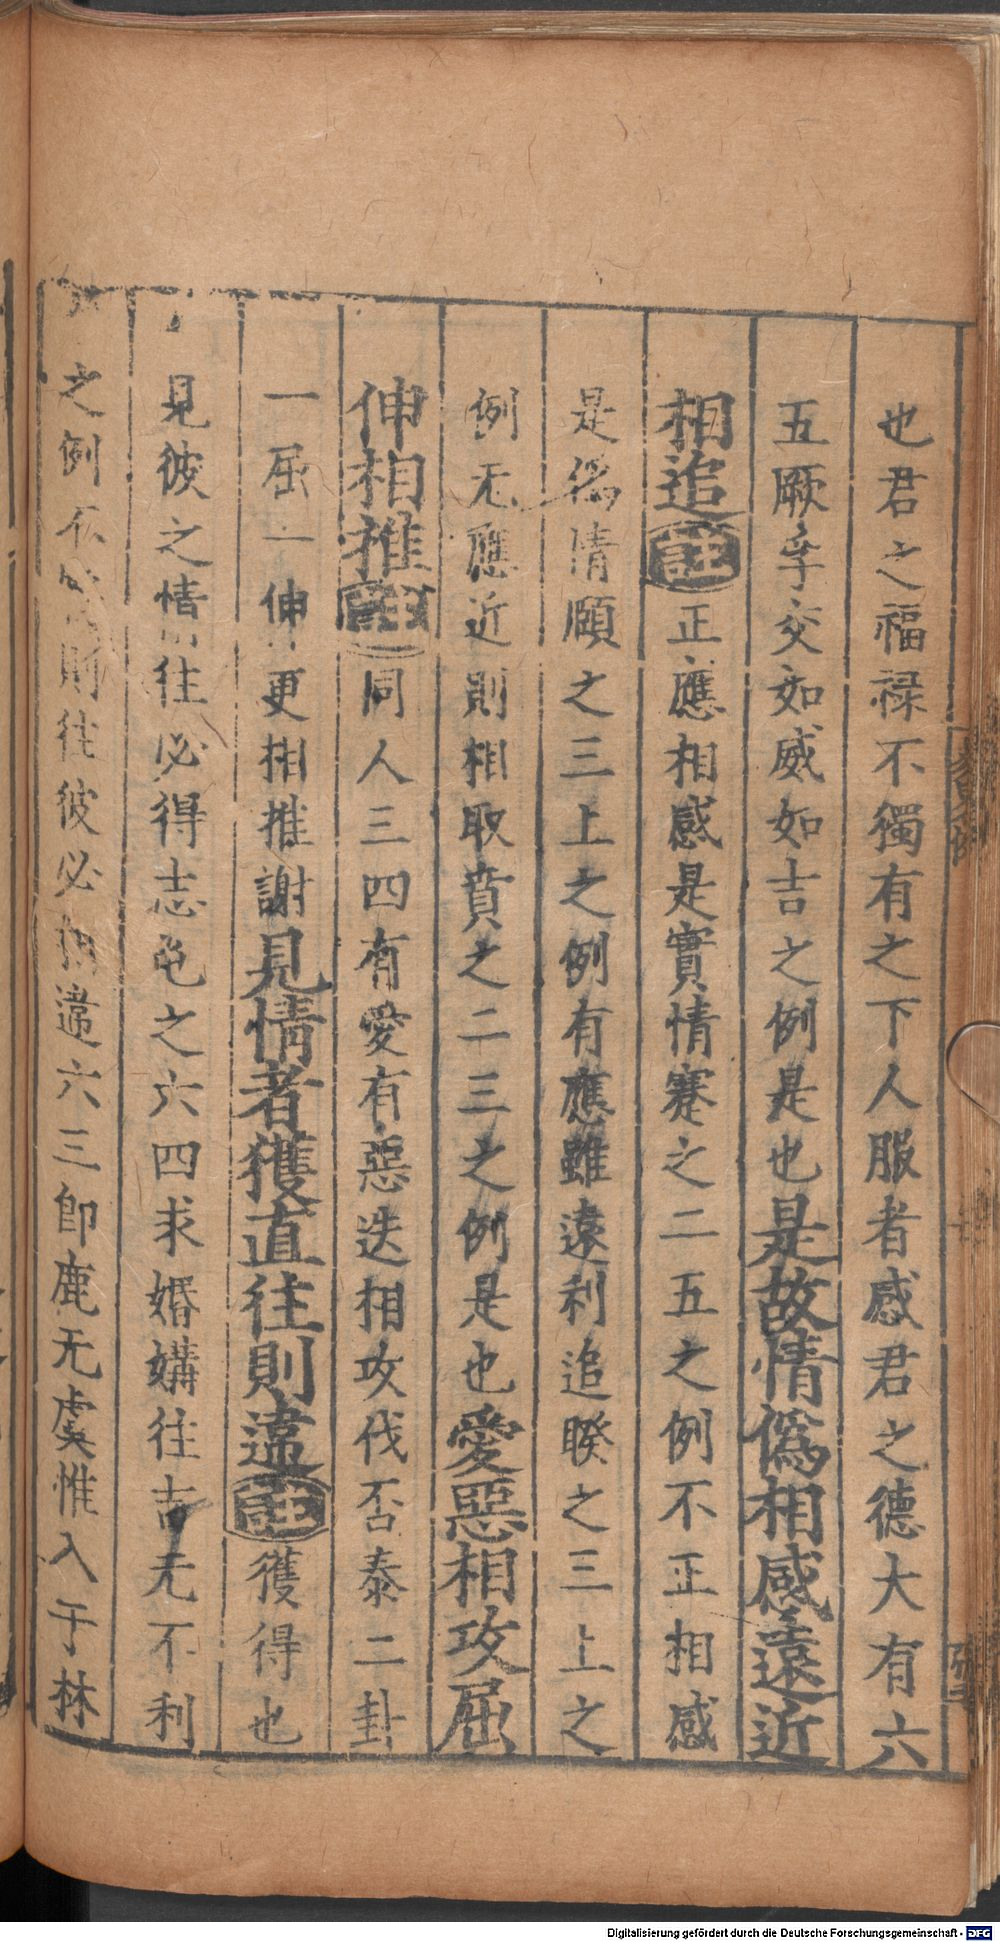 也君之福祿不獨有之下人服者感君之德大有六
五厥孚交如威如吉之例是也是故情僞相感遠近
相追註正應相感是實情蹇之二五之例不正相感
是僞情頤之三上之例有應雖遠利追睽之三上之
例无應近則相取賁之二三之例是也愛惡相攻屈
伸相推註同人三四有愛有惡迭相攻伐否泰二卦
一屈一伸更相推謝見情者獲直往則違註獲得也
見彼之情往必得志屯之六四求婚媾往吉无不利
之例不則往彼必相違六三即鹿无虞惟入于林
Digitalisierung gefördert durch die Deutsche Forschungsgemeinschaft - DFG